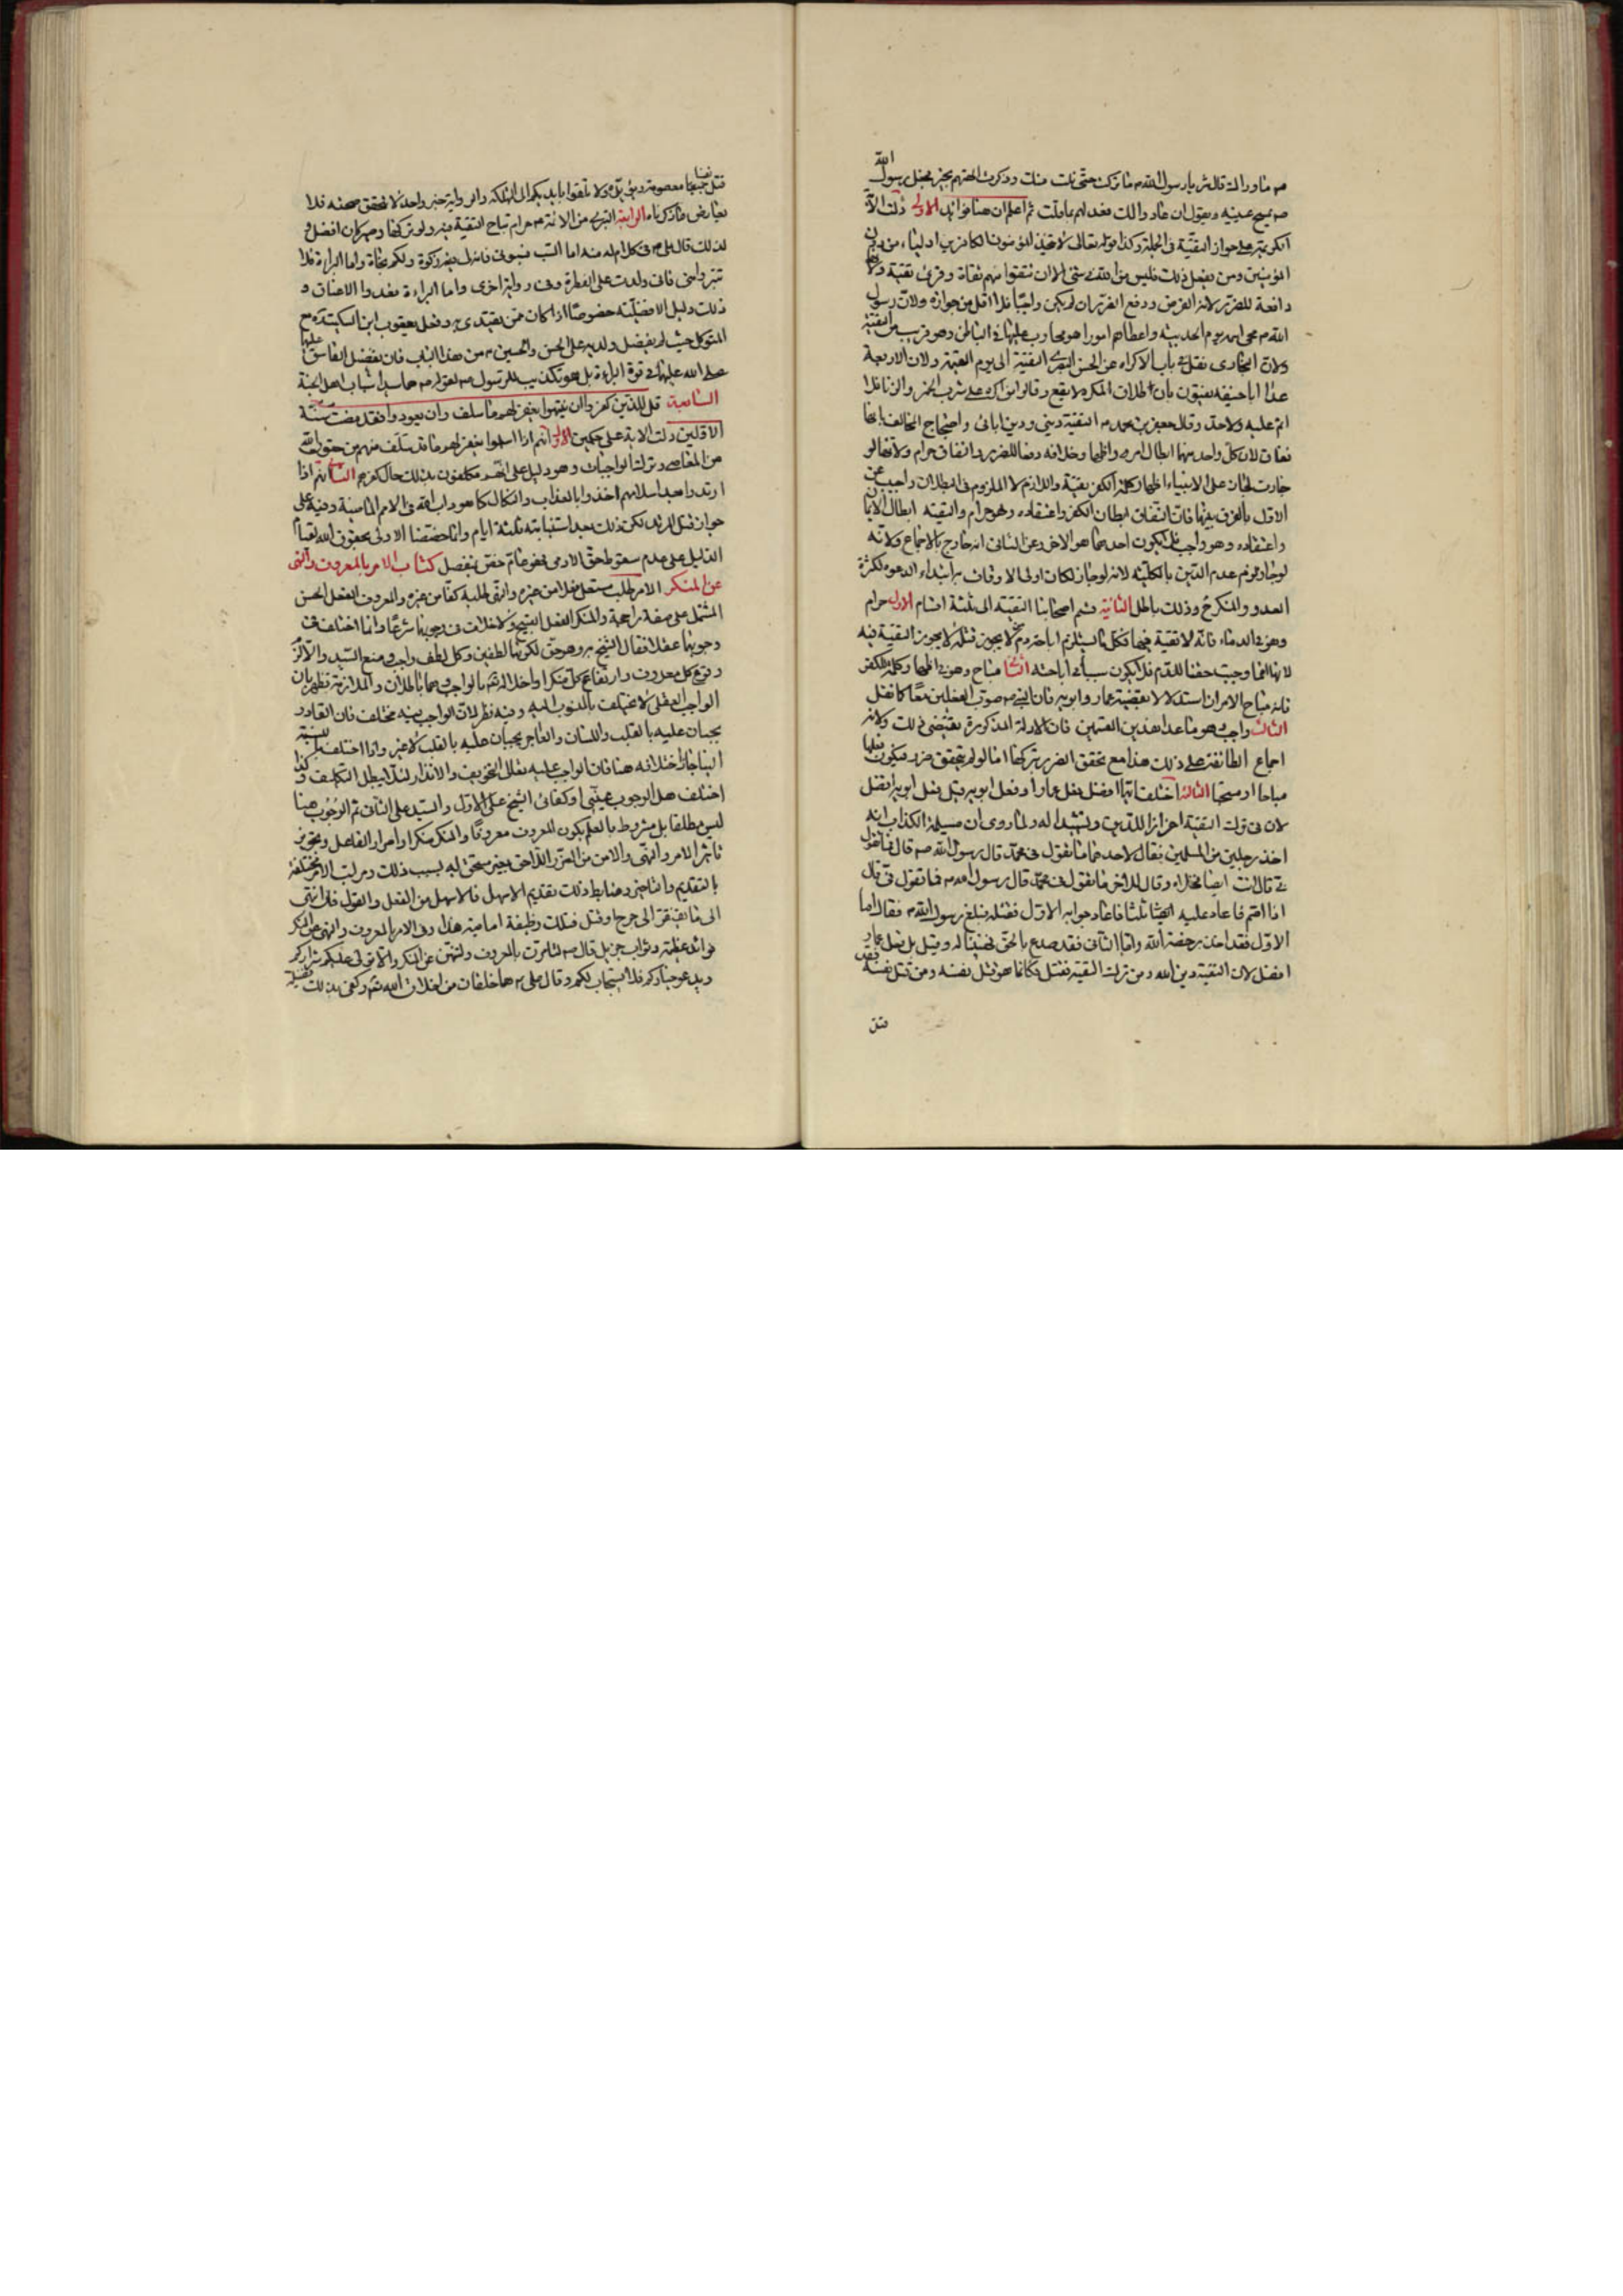 الله
صم ما وراك قال شر يا رسول الله صم ما تركت حتى نلت منك وذكرت الهتهم بخير فجعل رسول
صم يمسح عينيه ويقول ان عادوا لك فعد لهم بما قلت ثم اعلم ان هنا فوائد الاولى دلت الآ
الكريمة على جواز التقية في الجملة وكذا قوله تعالى لا يتخذ المؤمنون الكافرين اولياء من دون
المؤمنين ومن يفعل ذلك فليس من الله في شئ الا ان تتقوا منهم تقاة وقرئ تقية ولانها
دافعة للضرر لانه الفرض ودفع الضرر ان لم يكن واجبا فلا اقل من جوازه ولان رسول
الله صم محى اسمه يوم الحديبية واعطاهم امورا هو محارب عليها في الباطن وهو قريب من التقية
ولان البخارى نقل في باب الاكراه عن الحسن البصرى التقية الى يوم القيمة ولان الاربعة
عدا ابا حنيفة يفتون بان طلاق المكره لا يقع وقالوا من اكره على شرب الخمر والزنا فلا
اثم عليه ولا حد وقال جعفر بن محمد م التقية دينى ودين ابائى واحتجاج المخالف بانها
نفاق لان كل واحد منهما ابطال امر واظهار خلافه دفعا للضرر والنفاق حرام ولانها لو
جازت لجاز على الانبياء اظهار كلمة الكفر تقية واللازم كالملزوم في البطلان واجيب عن
الاول بالفرق بينهما فان النفاق ابطان الكفر واعتقاده وهو حرام والتقية ابطان الايمان
واعتقاده وهو واجب فلا يكون احدهما هو الاخر وعن الثانى انه خارج بالاجماع ولانه
لو جاز لزم عدم الدين بالكلية لانه لو جاز لكان اولى الاوقات به ابتداء الدعوة لكثرة
العدو والمنكر ح وذلك باطل الثانية قسم اصحابنا التقية الى ثلثة اقسام الاول حرام
وهو في الدماء فانه لا تقية فيها فكل ما يستلزم اباحة دم لا يجوز قتله لا يجوز التقية فيه
لانها انما وجبت حقنا للدم فلا يكون سببا في اباحته الثانى مباح وهو في اظهار كلمة الكفر
فانه مباح الامران استدلالا بقضية عمار وابويه فان النبى صم صوب الفعلين معا كما نقل
الثالث واجب وهو ما عدا هذين القسمين فان الادلة المذكورة تقتضى ذلك ولانه
اجماع الطائفة على ذلك هذا مع تحقق الضرر بتركها اما لو لم يتحقق ضرر فيكون فعلها
مباحا او مستحبا الثالثة اختلف ايما افضل فعل عمار او فعل ابويه قيل فعل ابويه افضل
لان في ترك التقية اعزازا للدين وتشييدا له ولما روى ان مسيلمة الكذاب انه
اخذ رجلين من المسلمين فقال لاحدهما ما تقول في محمد قال رسول الله صم قال فما تقول
في قال انت ايضا فخلاه وقال للاخر ما تقول في محمد قال رسول الله م فما تقول في قال
انا اصم فاعاد عليه ثلثا فاعاد جوابه الاول فقتله فبلغ رسول الله م فقال اما
الاول فقد اخذ برخصة الله واما الثانى فقد صدع بالحق فهنيئا له وقيل بل فعل عمار
افضل لان التقية دين الله ومن ترك التقية فقتل فكانما هو قتل نفسه ومن قتل نفسه فقد
قتل
قتل نفسا معصومة وبقوله ولا تلقوا بايديكم الى التهلكة والرواية خبر واحد لا تحقق صحته فلا
يعارض ما ذكرناه الرابعة التبرى من الائمة م حرام تباح التقية فيه ولو تركها وصبر كان افضل و
لذلك قال على م في كلام له منه اما السب فسبونى فانه لى زكوة ولكم نجاة واما البراءة فلا
تتبرؤا منى فانى ولدت على الفطرة وفى رواية اخرى واما البراءة فمدوا الاعناق و
ذلك دليل الافضلية خصوصا اذا كان ممن يقتدى به وفعل يعقوب ابن السكيت ره مع
المتوكل حيث لم يفضل ولديه على الحسن والحسين م من هذا الباب فان تفضيل الفاسق
على الله عليهما في قوة البراءة بل هو تكذيب للرسول صم لقوله صم هما سيدا شباب اهل الجنة
الثامنة قل للذين كفروا ان ينتهوا يغفر لهم ما قد سلف وان يعودوا فقد مضت سنة
الاولين دلت الاية على حكمين الاول انهم اذا اسلموا يغفر لهم ما قد سلف منهم من حقوق الله
من المعاصى وترك الواجبات وهو دليل على انهم مكلفون بذلك حال كفرهم الثانى انهم اذا
ارتدوا بعد اسلامهم اخذوا بالعذاب والنكال كما هو داب الله في الامم الماضية وفيه دليل على
جواز قتل المرتد لكن ذلك بعد استتابته ثلثة ايام وانما خصصنا الاول بحقوق الله لقيام
الدليل على عدم سقوط حق الادمى فهو عام خص بمنفصل كتاب الامر بالمعروف والنهى
عن المنكر الامر طلب مستعل فعلا من غيره والنهى طلبه كفا من غيره والمعروف الفعل الحسن
المشتمل على صفة راجحة والمنكر الفعل القبيح ولا خلاف في وجوبهما شرعا وانما اختلف في
وجوبهما عقلا فقال الشيخ به وهو حق لكونهما لطفين وكل لطف واجب ومنع السيد والا لزم
وقوع كل معروف وارتفاع كل منكر او اخلاله تعالى بالواجب وهما باطلان والملازمة تظهر بان
الواجب العقلى لا يختلف بالنسوب اليه وفيه نظر لان الواجب فيه مختلف فان القادر
يجبان عليه بالقلب واللسان والعاجز يجبان عليه بالقلب لا غير واذا اختلف بالنسبة
الينا جاز اختلافه هنا فان الواجب عليه تعالى التخويف والانذار لئلا يبطل التكليف وكذا
اختلف هل الوجوب عينى او كفائى الشيخ على الاول والسيد على الثانى ثم الوجوب هنا
ليس مطلقا بل مشروط بالعلم بكون المعروف معروفا والمنكر منكرا واصرار الفاعل وتجويز
تاثير الامر والنهى والامن من الضرر اللاحق بغير مستحق له بسبب ذلك ومراتب الامر مختلفة
بالتقديم والتاخير وضابط ذلك تقديم الاسهل فالاسهل من الفعل والقول فان انتهى
الى ما يفتقر الى جرح او قتل فتلك وظيفة امامية هذا وفى الامر بالمعروف والنهى عن المنكر
فوائد عظيمة وثواب جزيل قال صم لتامرن بالمعروف ولتنهن عن المنكر والا تولى عليكم شراركم
ويدعو خياركم فلا يستجاب لكم وقال على م هما خلقان من اخلاق الله تعالى وكفى بذلك فضيلة